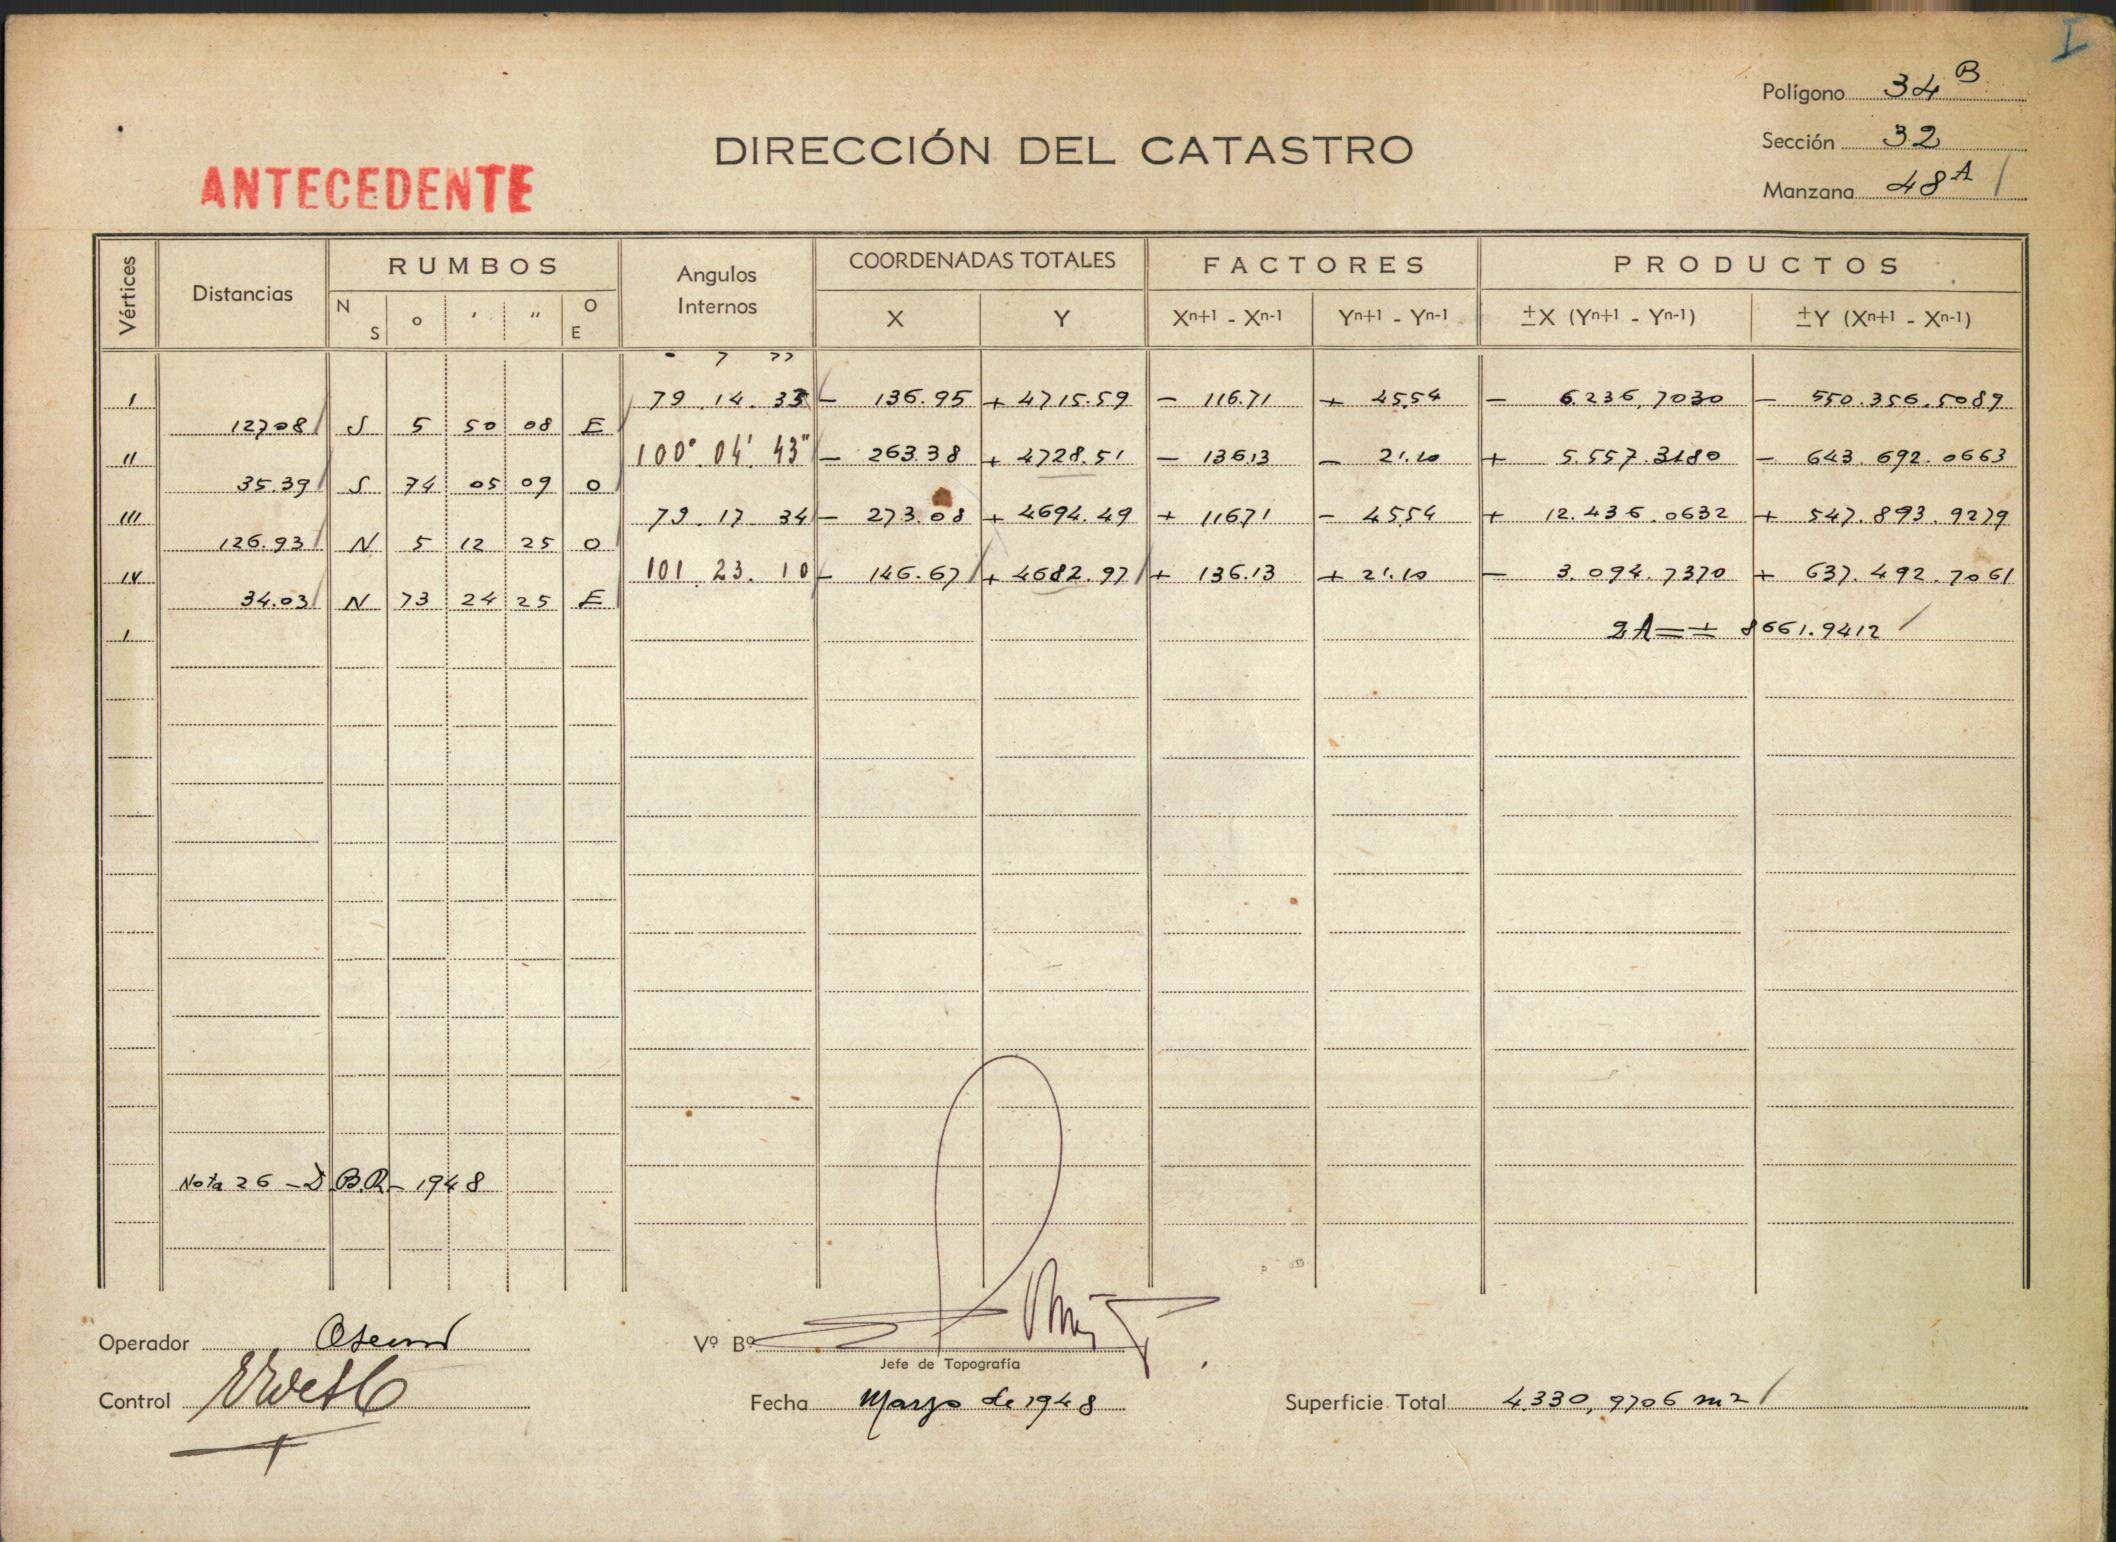 I
Polígono 34 B
DIRECCIÓN DEL CATASTRO
Sección 32
ANTECEDENTE
Manzana 48 A /
Vértices Distancias RUMBOS Angulos Internos COORDENADAS TOTALES FACTORES PRODUCTOS
N S o ' " O E X Y Xn+1 - Xn-1 Yn+1 - Yn-1 ±X (Yn+1 - Yn-1) ±Y (Xn+1 - Xn-1)
° ' "
I 79 . 14 . 33 - 136.95 + 4715.59 - 116.71 + 45.54 - 6.236,7030 - 550.356.5089
127.08 S 5 50 08 E
II 100° . 04' . 43" - 263.38 + 4728.51 - 136.13 - 21.10 + 5.557.3180 - 643.692.0663
35.39 S 74 05 09 O
III 79 . 17 34 - 273.08 + 4694.49 + 116.71 - 45.54 + 12.436.0632 + 547.893.9279
126.93 N 5 12 25 O
IV 101 . 23 . 10 - 146.67 + 4682.97 + 136.13 + 21.10 - 3.094.7370 + 637.492.7061
34.03 N 73 24 25 E
I 2A = ± 8661.9412
Nota 26 - D.B.R. - 1948
Operador
Vº Bº
Jefe de Topografía
Control
Fecha Marzo de 1948
Superficie Total 4.330,9706 m2